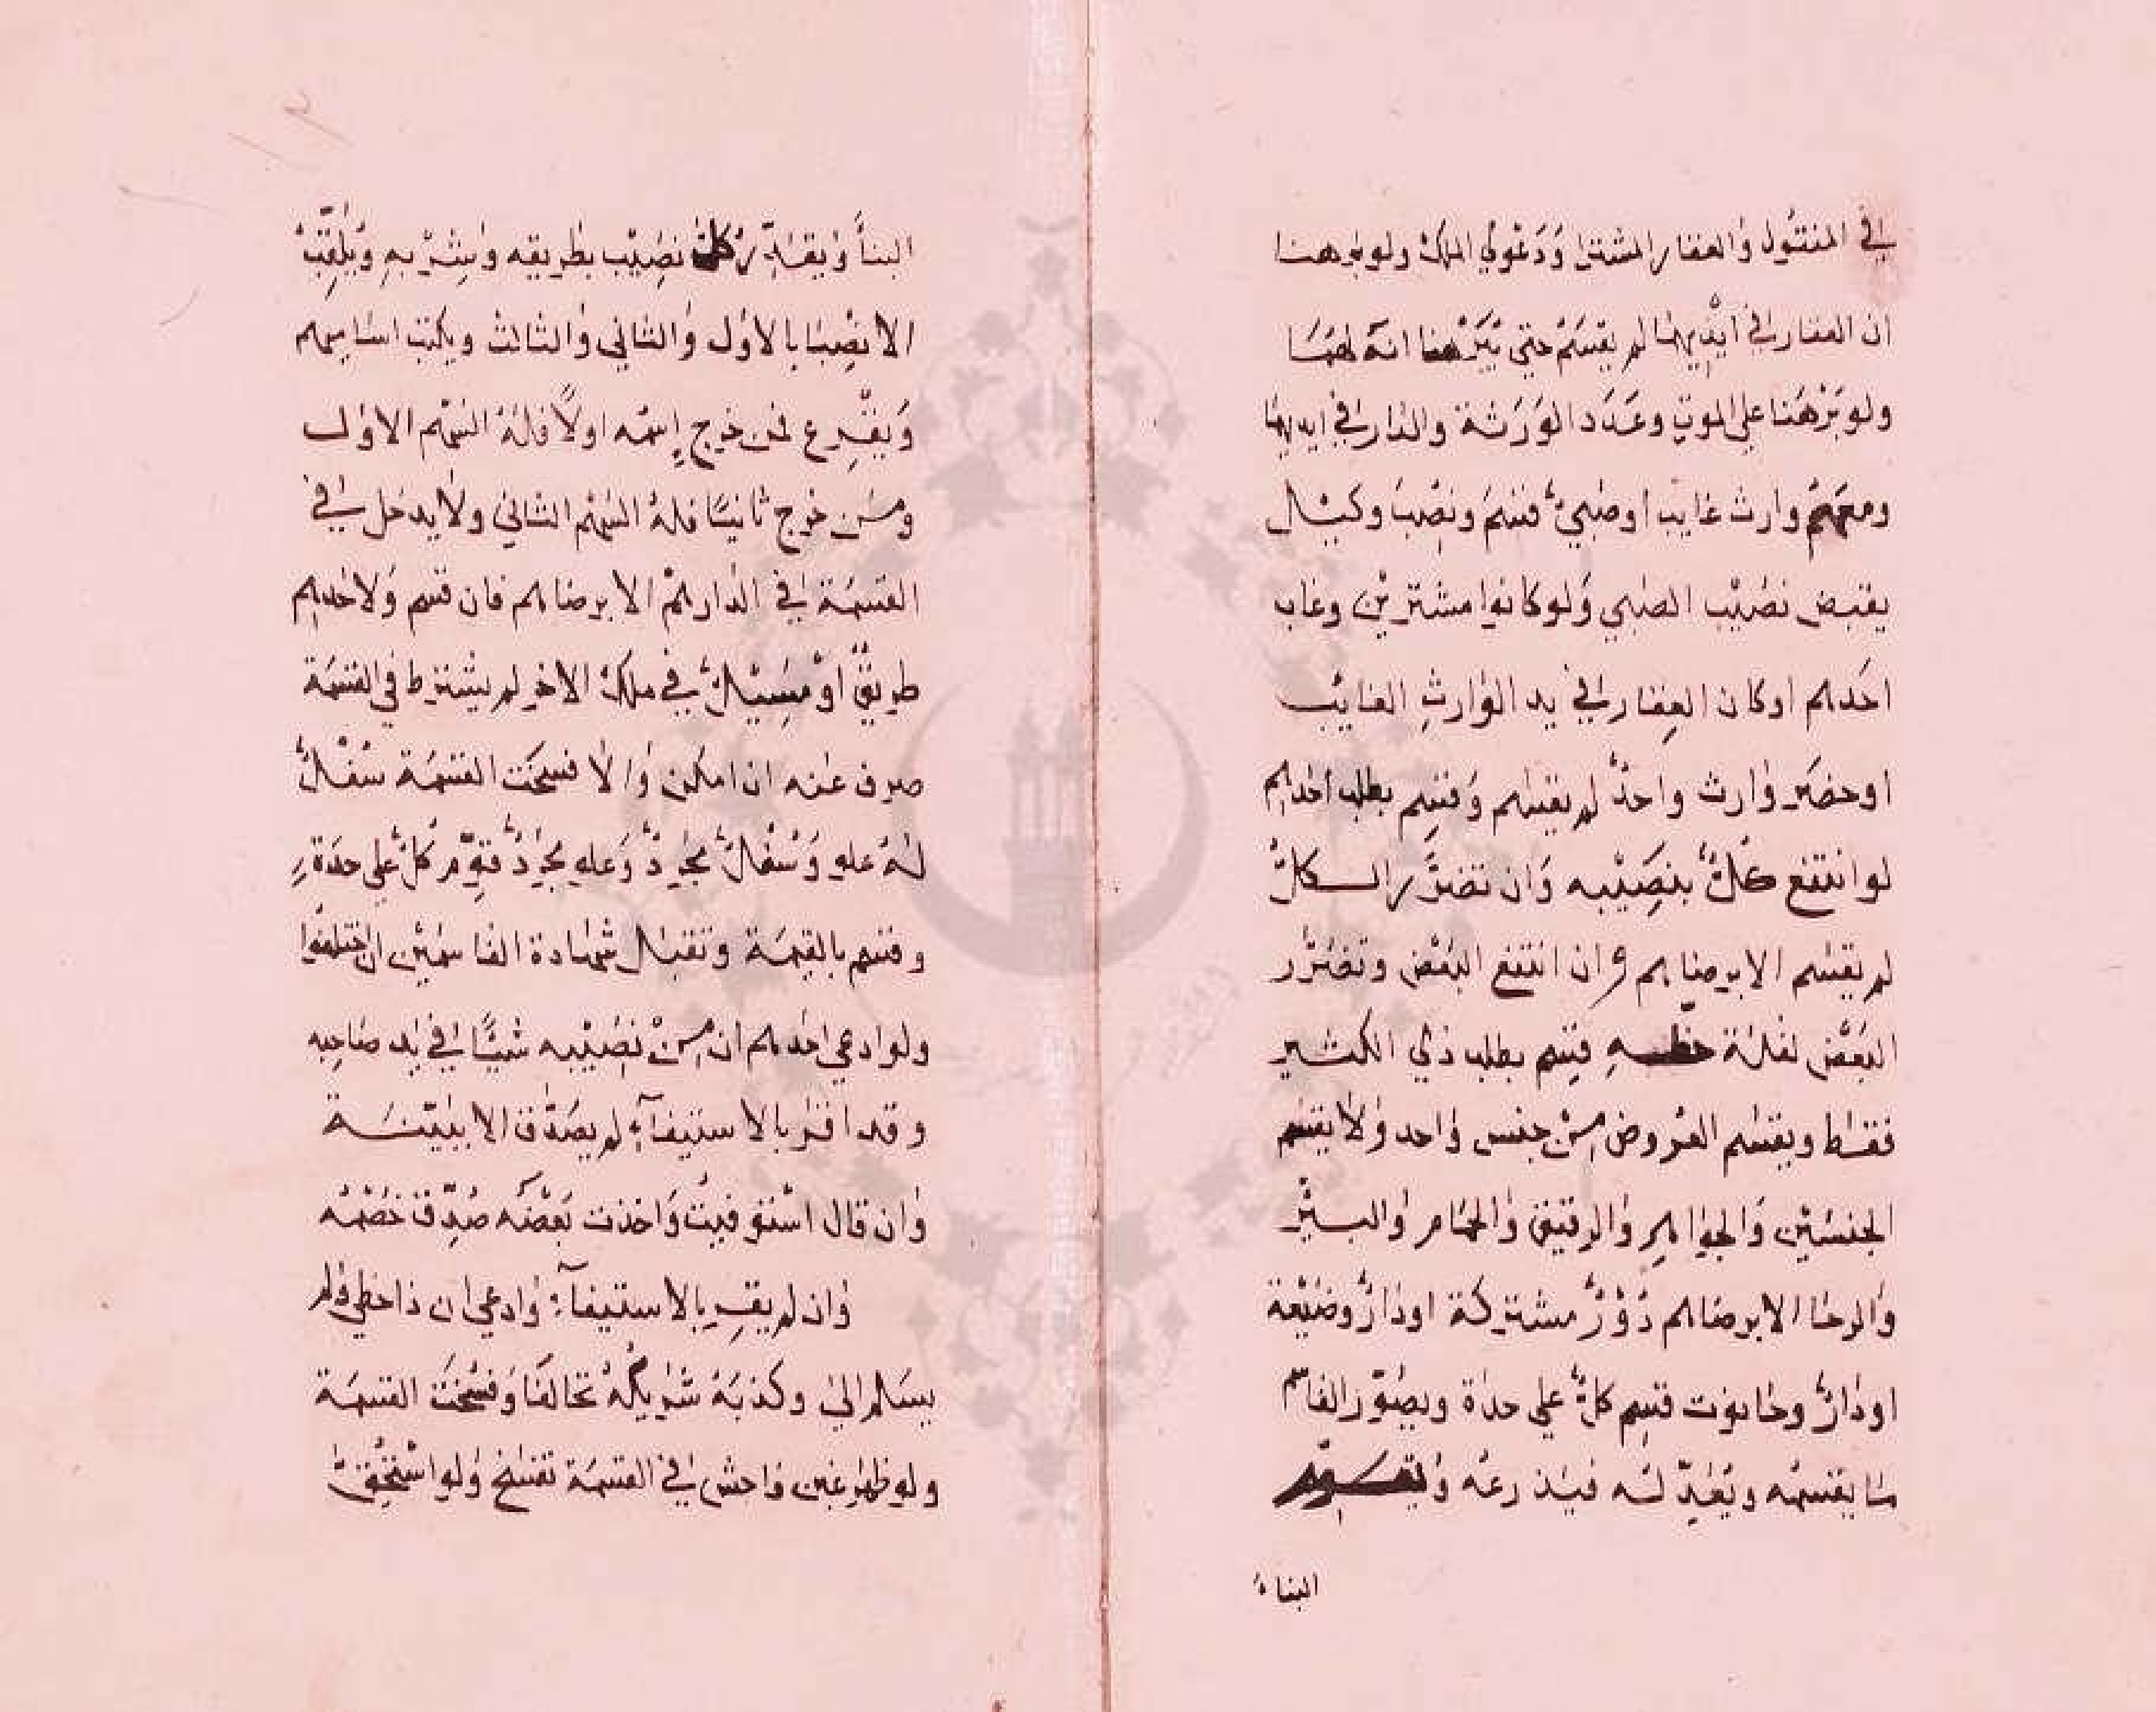 في المنقول والعقار المشترا ودعوي الملك ولو برهنا
ان العقار في ايديهما لم يقسم حتي يبرهنا انه لهما
ولو برهنا علي الموت وعدد الورثة والدار في ايديهما
ومعهم وارث غايب او صبي قسم ونصب وكيل
يقبض نصيب الصبي ولو كانوا مشترين وغاب
احدهم او كان العقار في يد الوارث الغايب
او حضر وارث واحد لم يقسم وقسم بطلب احدهم
لو انتفع كل بنصيبه وان تضرر الكل
لم يقسم الا برضاهم وان انتفع البعض وتضرر
البعض لقلة حظه قسم بطلب ذي الكثير
فقط ويقسم العروض من جنس واحد ولا يقسم
الجنسين والجواهر والرقيق والحمام والبير
والرحا الا برضاهم دور مشتركة او دار وضيعة
او دار وحانوت قسم كل علي حدة ويصور القاسم
ما يقسمه ويعدله فيذرعه ويقوم
البناء
البنا ويفرز كل نصيب بطريقه وشربه ويلقب
الانصبا بالاول والثاني والثالث ويكتب اساميهم
ويقرع فمن خرج اسمه اولا فله السهم الاول
ومن خرج ثانيا فله السهم الثاني ولا يدخل في
القسمة في الدارهم الا برضاهم فان قسم ولاحدهم
طريق او مسيل في ملك الاخر لم يشترط في القسمة
صرف عنه ان امكن والا فسخت القسمة سفل
له علو وسفل مجرد وعلو مجرد قوم كل علي حدة
وقسم بالقيمة وتقبل شهادة القاسمين ان اختلفوا
ولو ادعي احدهم ان من نصيبه شيئا في يد صاحبه
وقد اقر بالاستيفاء لم يصدق الا ببينة
وان قال استوفيت واخذت بعضه صدق خصمه
وان لم يقر بالاستيفاء وادعي ان ذا حظي ولم
يسلم الي وكذبه شريكه تحالفا وفسخت القسمة
ولو ظهر غبن فاحش في القسمة تفسخ ولو استحق